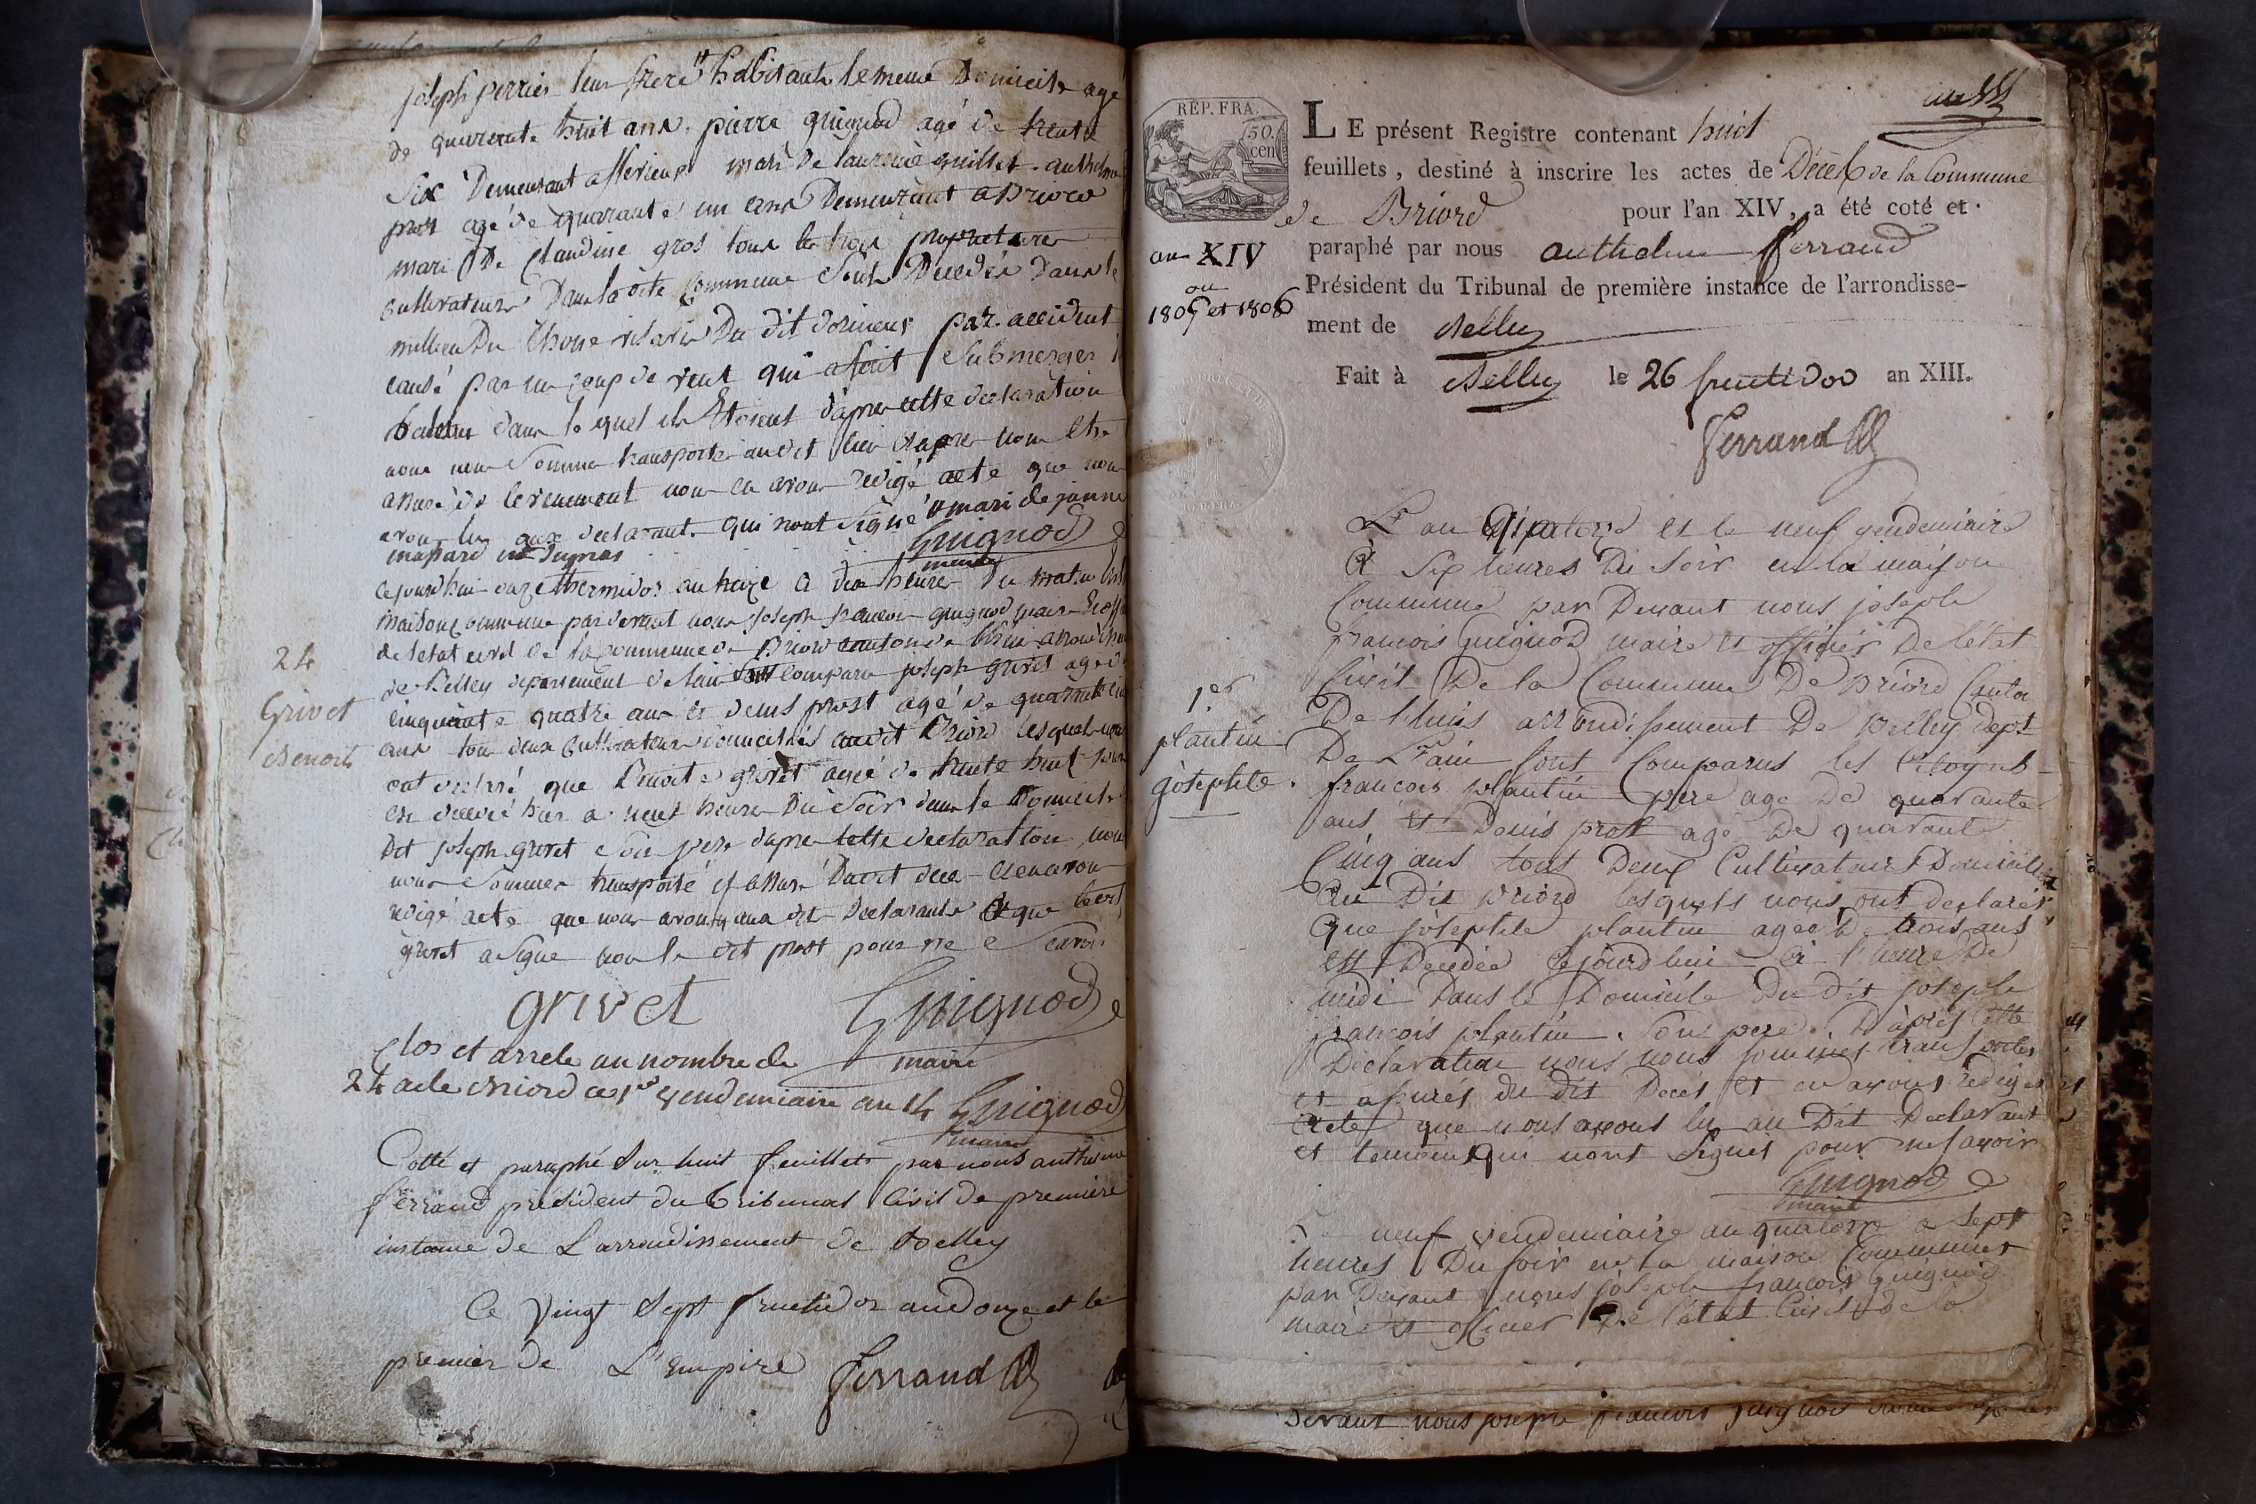 joseph perrier leur frere habitant le meme Domicile agé
de quarente huit ans. pierre guignod agé de trente
six Demeurant a mari De laurence guillet. anthelme
prost agé de quarante un ans Demeurant a Briord
mari De Claudine gros tous les trois proprietaires
cultivateurs Dans la dite Commune Sont Décédés dans le
millieu Du Rhone Du dit par accident
causé par un coup de vent qui a fait submerger le
bateau dans le quel ils Etoient d'apres cette declaration
nous nous Somme transporter au dit lieu et apres nous etre
assuré de levenement nous en avons redigé acte que nous
avons lu aux declarant qui n'ont Signé # mari de janne
Guignod
maire
ce jourd'hui onze thermidor an treize a dix heures Du matin
maison commune par devant nous joseph francois guignod maire
de l'etat civil de la commune de Briord canton de lhuis
de Belley departement de lain sont comparu joseph grivet agé de
cinquante quatre ans et denis prost agé de quarante
ans tous deux cultivateurs domiciliés audit Briord lesquels nous
ont declaré que Benoite grivet agée de trente huit
est decedé hier a neuf heures Du Soir dans le Domicile
Dit joseph grivet son pere d'apres cette declaration nous
nous Sommes transporté et assuré Dudit deces et en avons
redigé acte que nous avons lu aux dit Declarants et que le dit
grivet a Signé non le dit prost pour ne Savoir
24
Grivet
Benoite
grivet Guignod
maire
Clos et arrete au nombre de
24 acte Briord ce 1er vendemiaire an 14 Guignod
maire
Cotté et paraphé Sur huit feuillets par nous anthelme
ferrand président du tribunal Civil de première
instance de L'arrondissement de Belley
Ce vingt Sept fructidor an douze et le
premier de L'Empire Ferrand
RÉP. FRA.
50.
cen
LE présent Registre contenant huit
feuillets, destiné à inscrire les actes de Décès de la Commune
de Briord pour l'an XIV, a été coté et
paraphé par nous anthelme ferrand
Président du Tribunal de première instance de l'arrondisse-
ment de Belley
Fait à Belley le 26 fructidor an XIII.
Ferrand
an XIV
ou
1805 et 1806
L'an Quatorze et le neuf vendemiaire
à Six heures Du Soir en la maison
Commune par Devant nous joseph
francois Guignod maire et officier De l'état
Civil De la Commune De Briord Canton
De lhuis arrondissement De Belley dept
De L'ain sont Comparus les Citoyens
francois plantin pere age De quarante
ans et Denis prost agé De quarante
Cinq ans tout Deux Cultivateurs Domiciliés
au Dit Briord lesquels nous ont declarés
Que josephte plantin agée De trois ans
est Decedée Cejourdhui à l'heure De
midi Dans le Domicile Du dit joseph
francois plantin son pere. D'après cette
Declaration nous nous sommes transportés
et assurés du dit Deces et en avons rediges
acte que nous avons lu au Dit Declarant
et temoins qui nont Signes pour ne savoir
Guignod
maire
1er
plantin
josephte.
neuf vendemiaire an quatorze a Sept
heures Du soir en la maison Commune
par Devant nous joseph francois guignod
maire et officier De l'état Civil de la
Devant nous joseph francois guignod